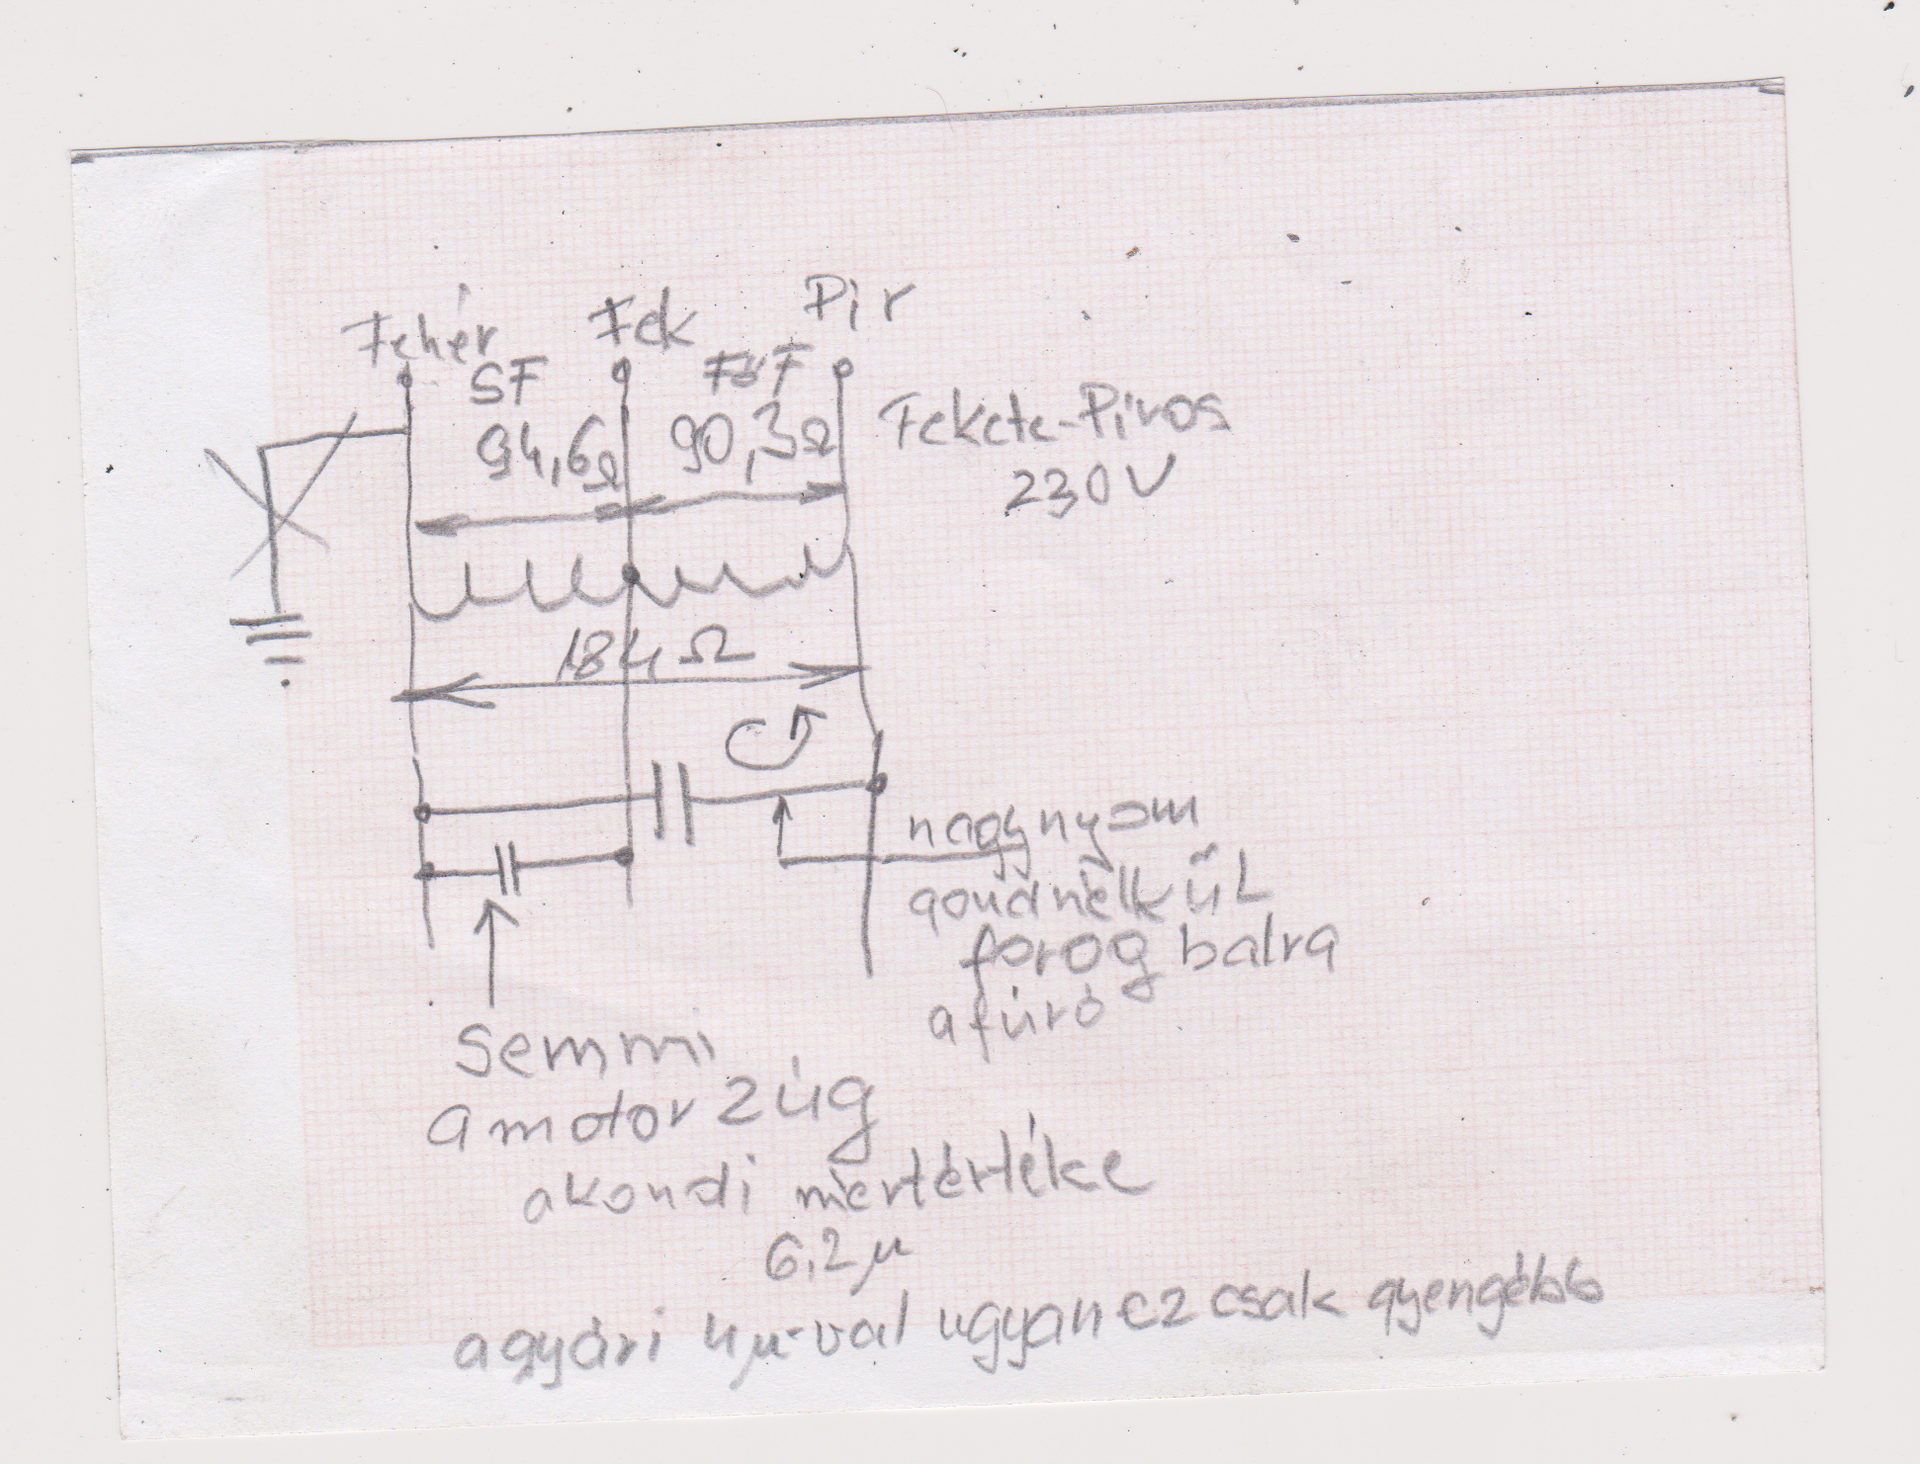 Fehér Fek Pir
SF FőF
94,6Ω 90,3Ω
Fekete-Piros
230V
184Ω
nagy nyom
gond nélkűl
forog balra
a fúró
Semmi
a motor zúg
a kondi mértértéke
6,2µ
a gyári 4µ-val ugyan ez csak gyengébb